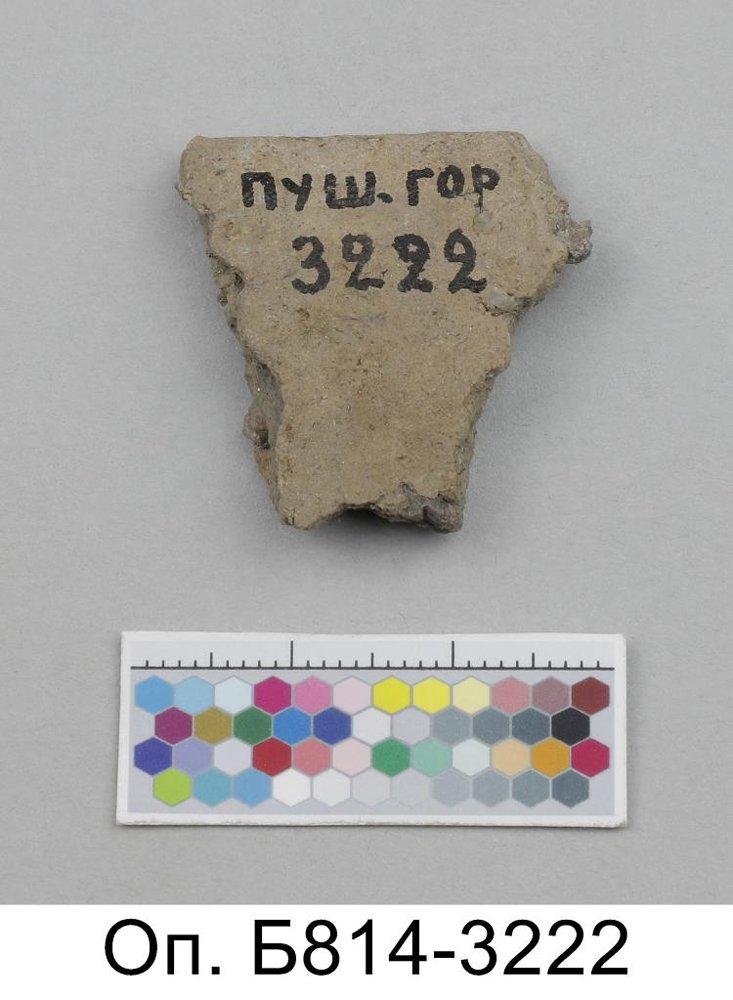 ПУШ. ГОР
3222
Оп. Б814-3222